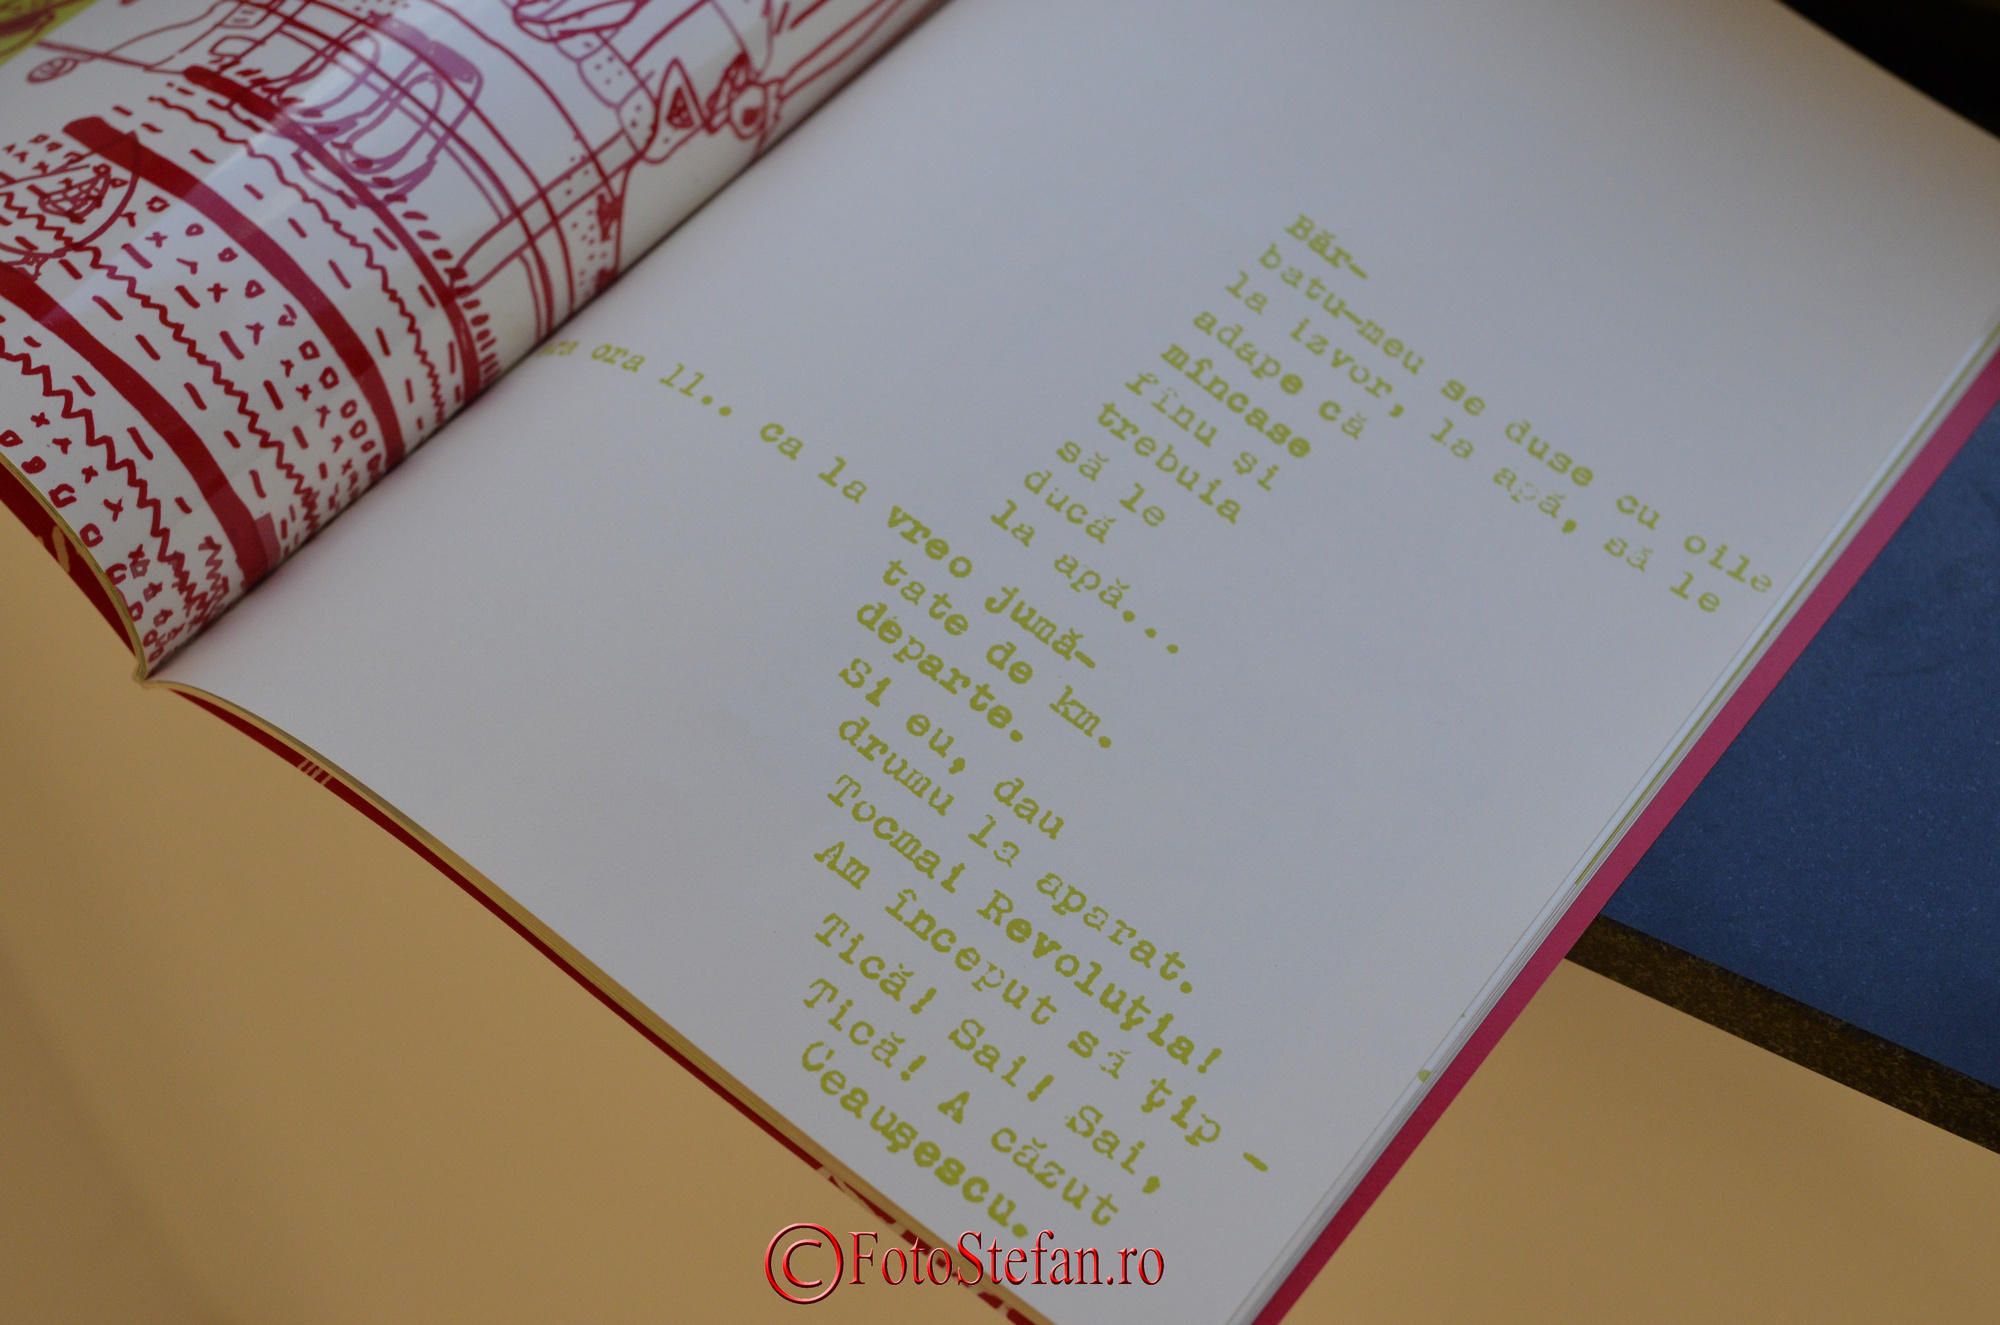 Băr-
batu-meu se duse cu oile
la izvor, la apă, să le
adape că
mîncase
fînu și
trebuia
să le
ducă
la apă...
ora 11.. ca la vreo jumă-
tate de km.
departe.
Si eu, dau
drumu la aparat.
Tocmai Revoluţia!
Am început să ţip -
Tică! Sai! Sai,
Tică! A căzut
Ceauşescu.
©FotoStefan.ro